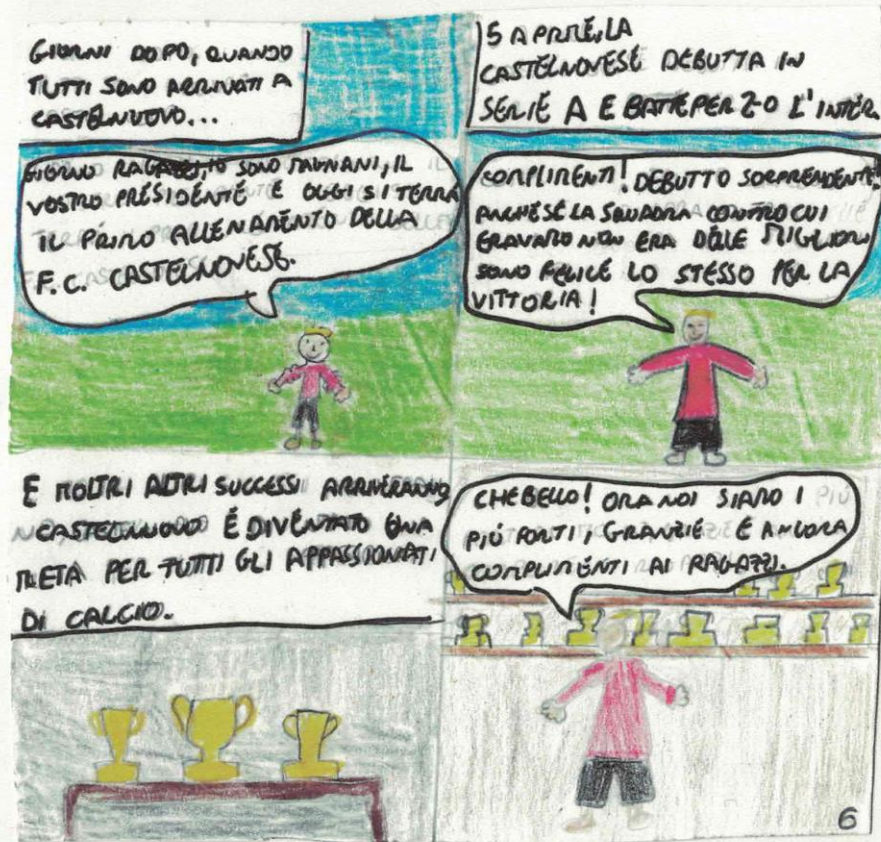 GIORNI DOPO, QUANDO
TUTTI SONO ARRIVATI A
CASTELNUOVO...
GIORNO RAGAZZI, IO SONO MAGNANI, IL
VOSTRO PRESIDENTE E OGGI SI TERRÀ
IL PRIMO ALLENAMENTO DELLA
F.C. CASTELNOVESE.
5 APRILE, LA
CASTELNOVESE DEBUTTA IN
SERIE A E BATTE PER 2-0 L'INTER.
COMPLIMENTI! DEBUTTO SORPRENDENTE!
ANCHE SE LA SQUADRA CONTRO CUI
ERAVAMO NON ERA DELLE MIGLIORI
SONO FELICE LO STESSO PER LA
VITTORIA!
E MOLTRI ALTRI SUCCESSI ARRIVERANNO
CASTELNUOVO É DIVENTATO UNA
META PER TUTTI GLI APPASSIONATI
DI CALCIO.
CHE BELLO! ORA NOI SIAMO I
PIÚ FORTI, GRANZIE E ANCORA
COMPLIMENTI AI RAGAZZI.
6